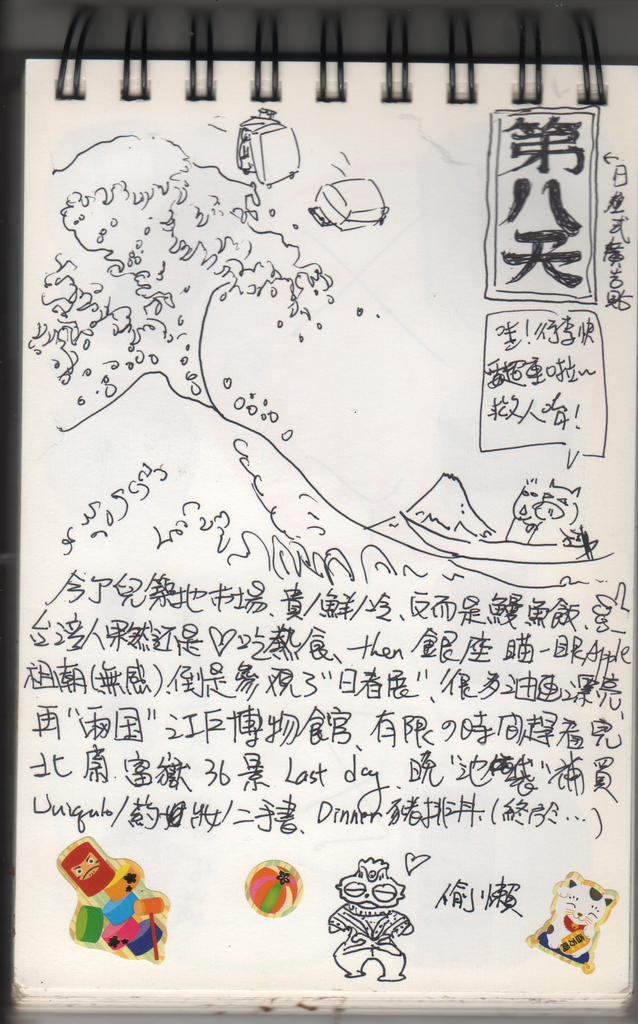 第八天
哇!行李快
超重啦~
救人哪!
今了兒築地市場、貴/鮮/冷、反而是鰻魚飯、
台灣人果然還是♡吃熱食、then 銀座 瞄一眼Apple
祖朝(無感).倒是參觀了"日者展".很多油画漂亮、
再"両国"江戶博物館、有限の時間趕看完
北齋.富嶽36景 Last day.晚"池袋"補買
Uniqulo/藥妝/二手書、Dinner 豬排丼.(終於...)
偷懶